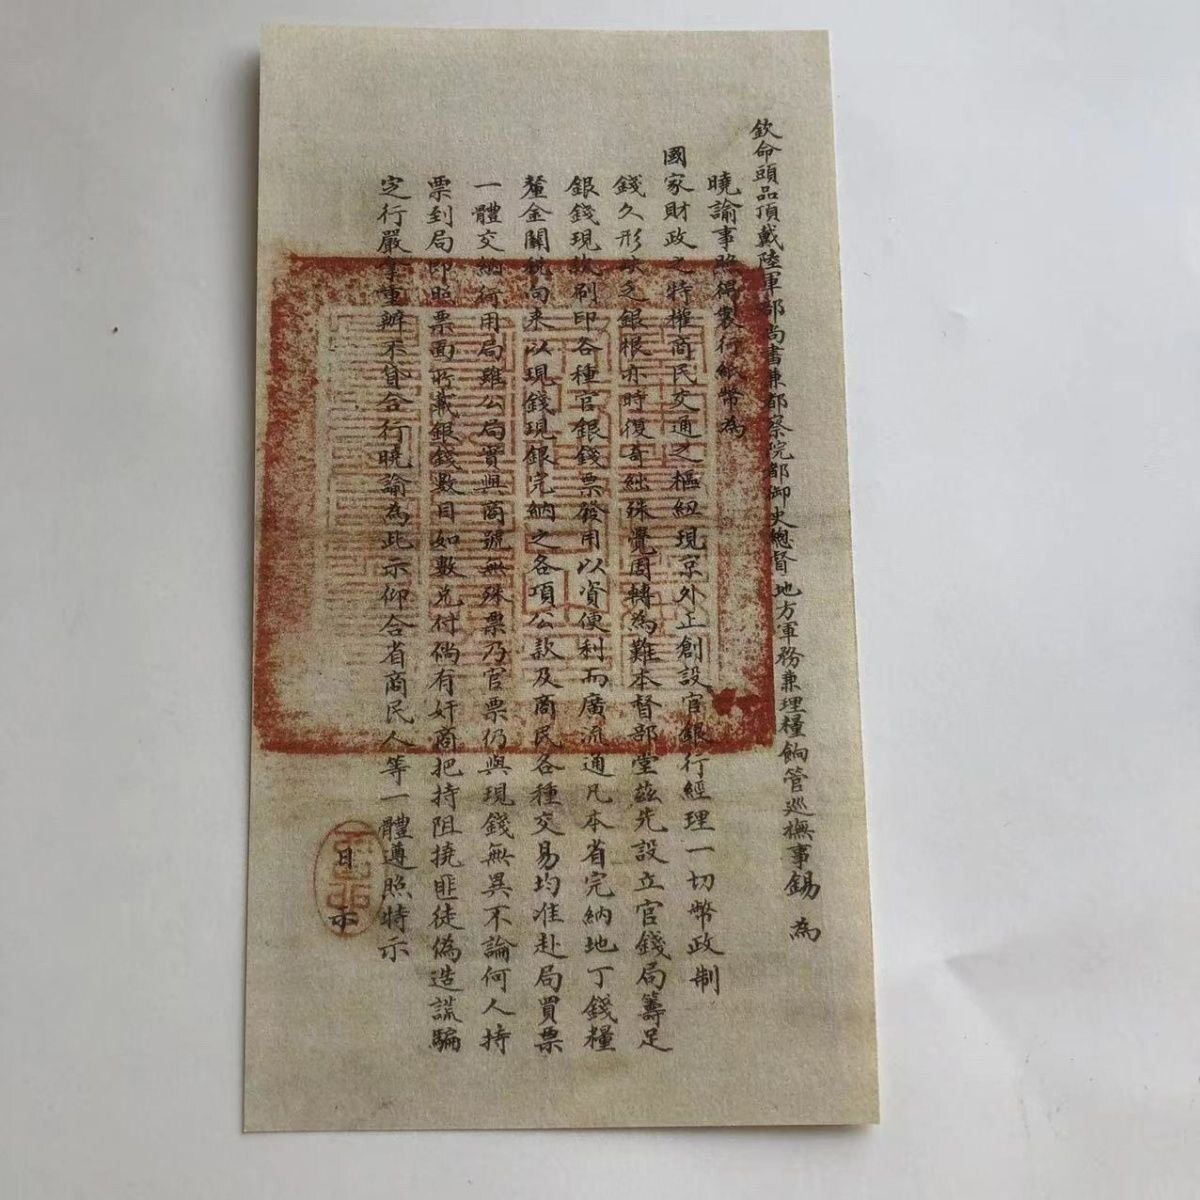 欽命頭品頂戴陸軍部尚書兼都察院都御史總督地方軍務兼理糧餉管巡撫事錫為
曉諭事照得製行紙幣為
國家財政之特權商民交通之樞紐現京外正創設官銀行經理一切幣政制
錢久形缺乏銀根亦時復奇絀殊覺周轉為難本督部堂茲先設立官錢局籌足
銀錢現款刷印各種官銀錢票發用以資便利而廣流通凡本省完納地丁錢糧
釐金關稅向來以現錢現銀完納之各項公款及商民各種交易均准赴局買票
一體交納行用局雖公局實與商號無殊票乃官票仍與現錢無異不論何人持
票到局即照票面所載銀錢數目如數兌付倘有奸商把持阻撓匪徒偽造謊騙
定行嚴拏重辦不貸合行曉諭為此示仰合省商民人等一體遵照特示
日示